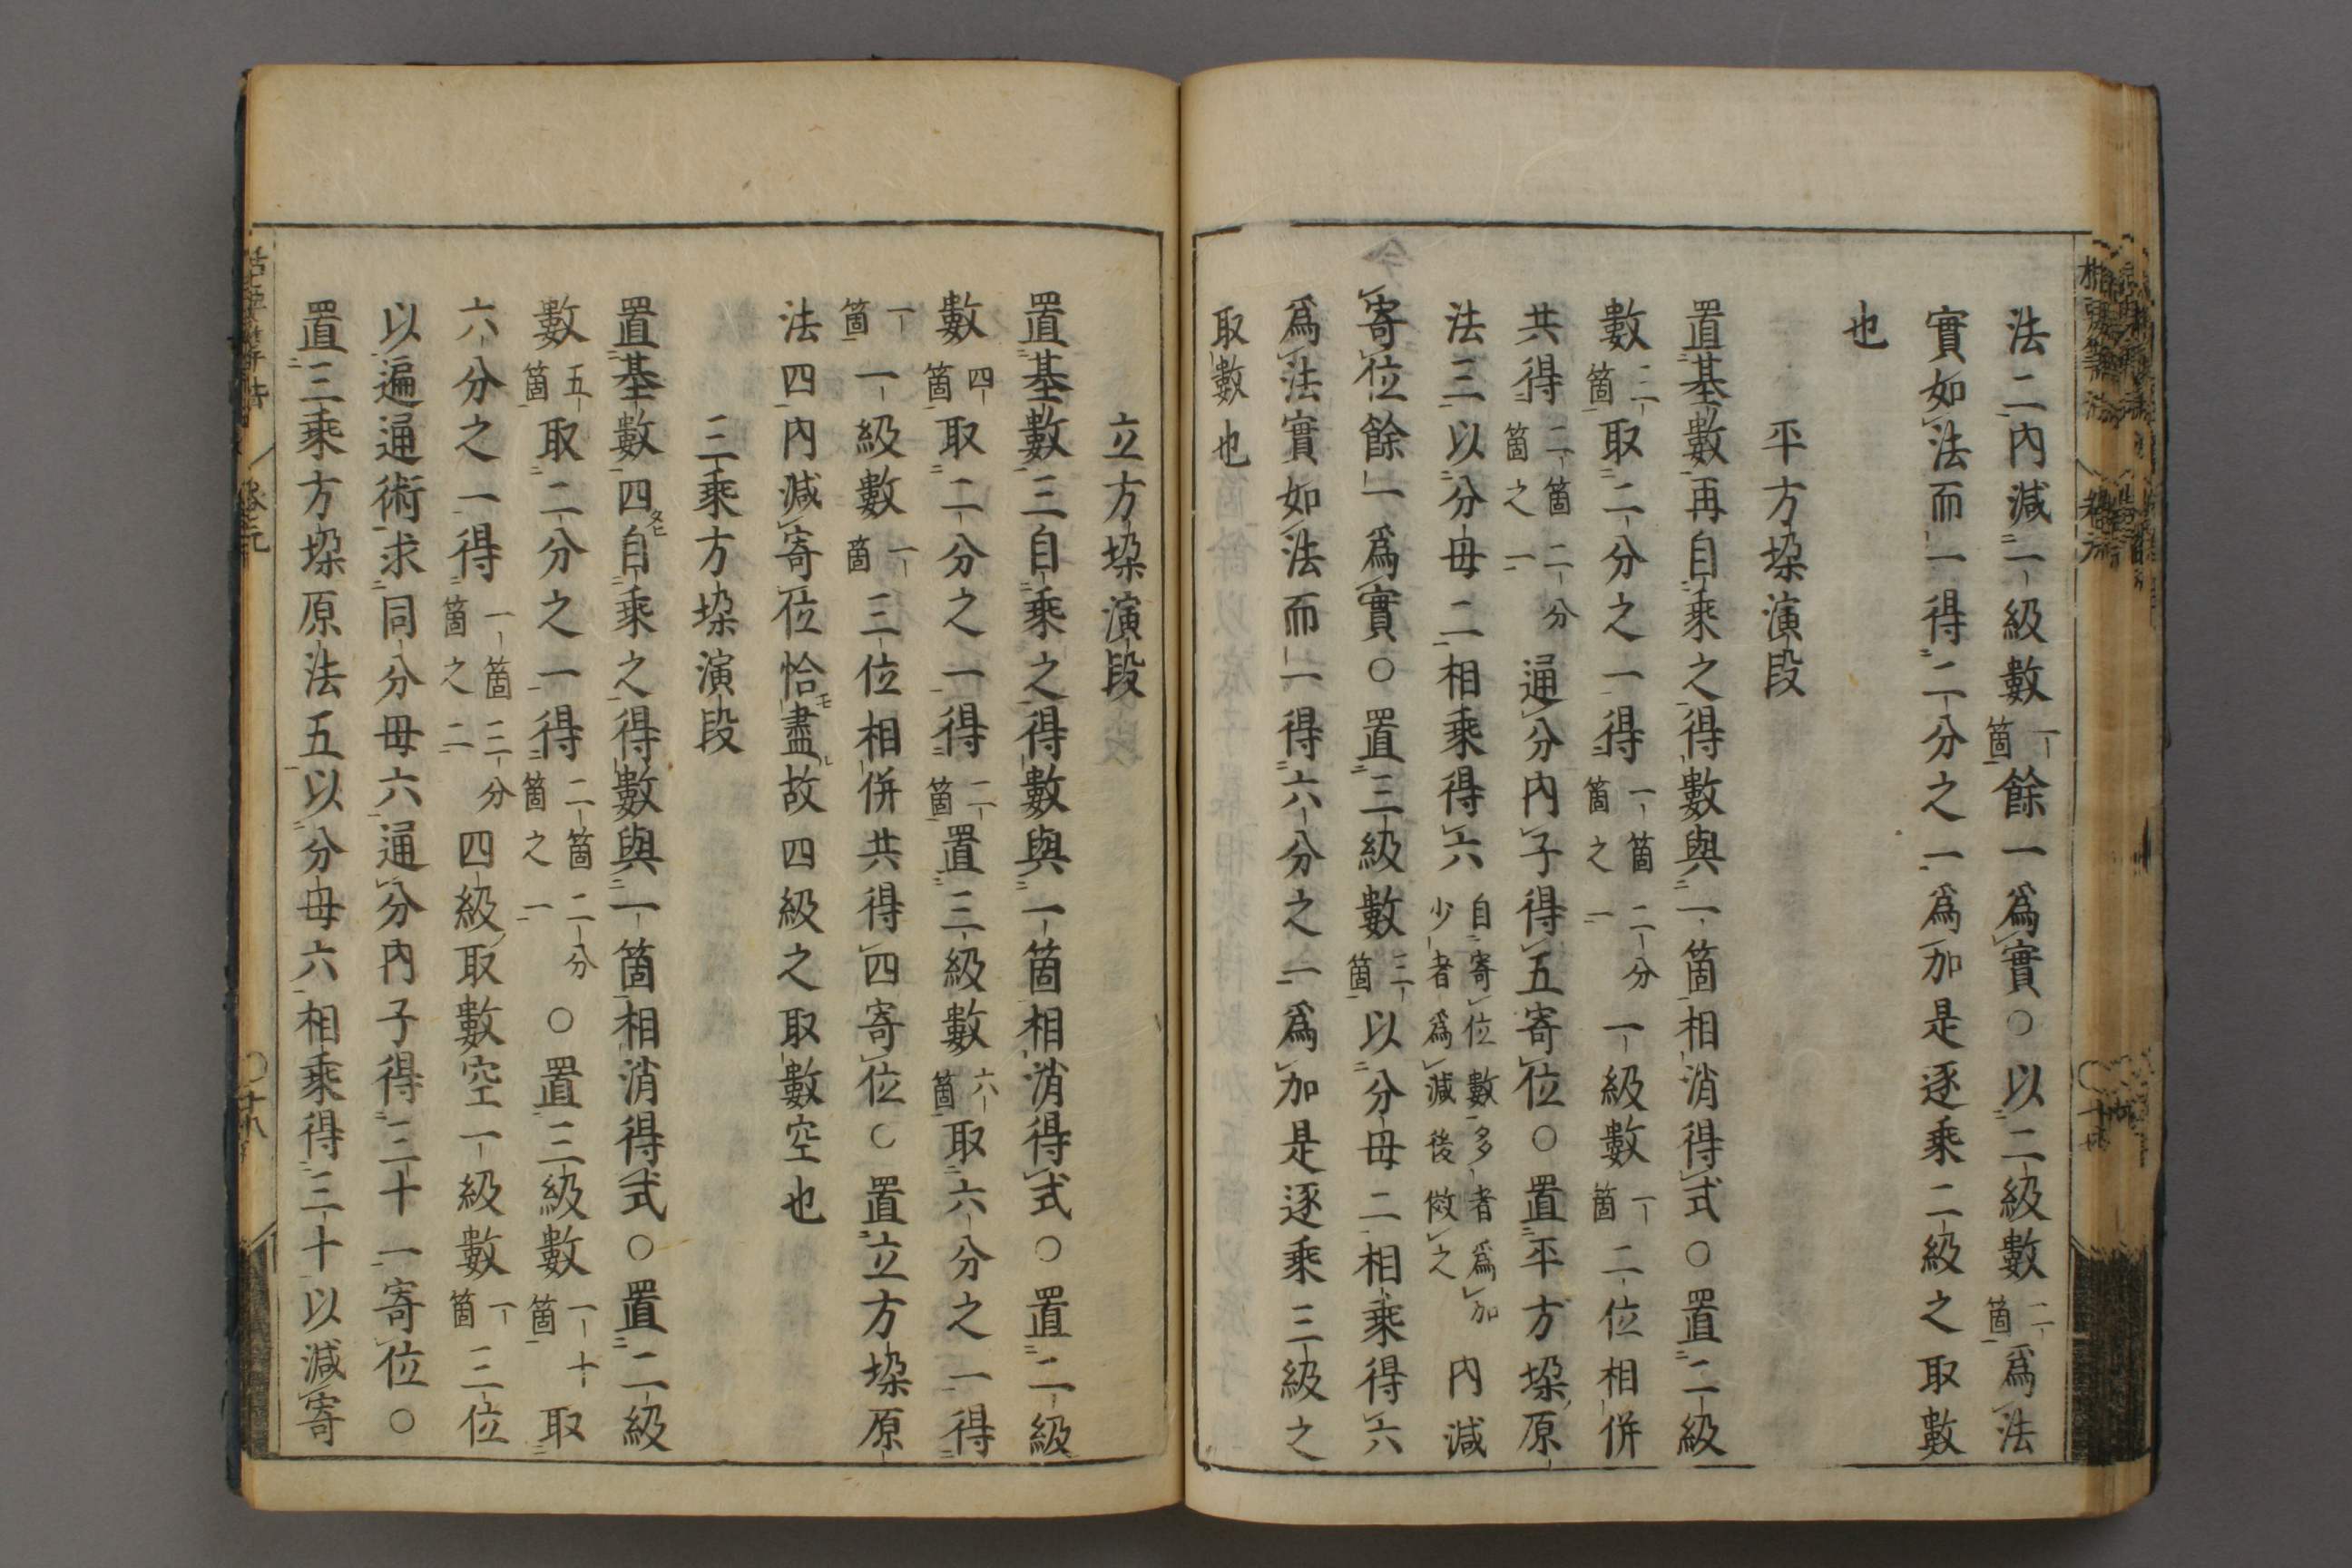 法二內減一級數一箇餘一爲實○以二級數二箇爲法
實如法而一得二分之一爲加是逐乘二級之取數
也
平方垜演段
置基數再自乘之得數與一箇相消得式○置二級
數三箇取二分之一得一箇二分箇之一一級數一箇二位相併
共得二箇二分箇之一通分內子得五寄位○置平方垜原
法三以分母二相乘得六自寄位數多者爲加少者爲減後倣之內減
寄位餘一爲實○置三級數三箇以分母二相乘得六
爲法實如法而一得六分之一爲加是逐乘三級之
取數也
立方垜演段
置基數三自乘之得數與一箇相消得式○置二級
數四箇取二分之一得二箇置三級數六箇取六分之一得
一箇一級數一箇三位相併共得四寄位○置立方垜原
法四內減寄位恰盡故四級之取數空也
三乘方垜演段
置基數四自乘之得數與一箇相消得式○置二級
數五箇取二分之一得二箇二分箇之一○置三級數一十箇取
六分之一得一箇三分箇之二四級取數空一級數一箇三位
以遍通術求同分母六通分內子得三十一寄位○
置三乘方垜原法五以分母六相乘得三十以減寄